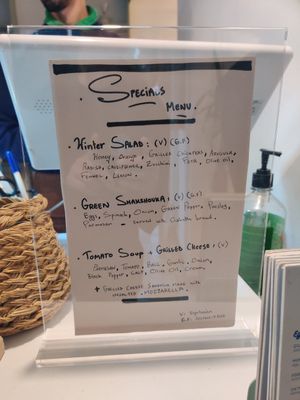 Specials
Menu.
Winter Salad: (V) (G.F)
Honey, Orange, Grilled Chickpeas, Arugula,
Radish, Cauliflower, Zucchini, Feta, Olive oil,
Fennel, Lemon.
Green Shakshouka: (V) (G.F)
Eggs, Spinach, Onion, Green Pepper, Parsley,
Parmesan - served with bread.
Tomato Soup + Grilled Cheese: (V)
Parmesan, Tomato, Basil, Garlic, Onion,
Black Pepper, Salt, Olive Oil, Cream.
+ Grilled Cheese Sandwich made with
Mozzarella.
V: Vegetarian
G.F: